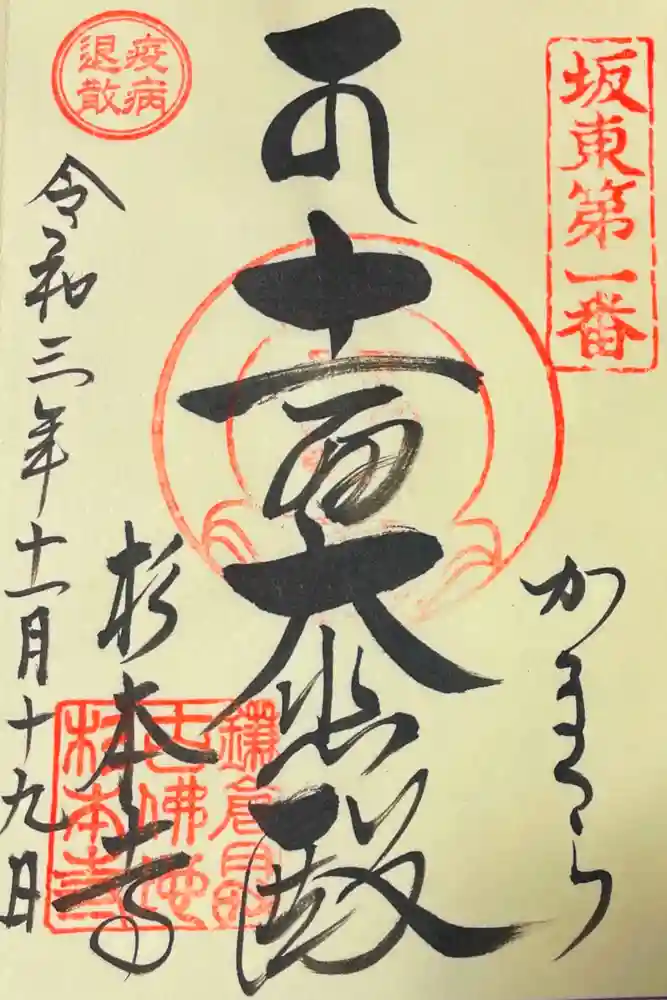 坂東第一番
かまくら
十一面大悲殿
疫病
退散
杉本寺
令和三年十一月十九日
鎌倉
古佛地
杉本寺